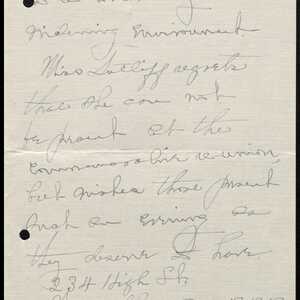 Maddening Environment.
Miss Sutliff regrets
that she can not
be present at the
Commonwealth re-union,
but wishes those present
such an evening as
they deserve to have.
234 High St.